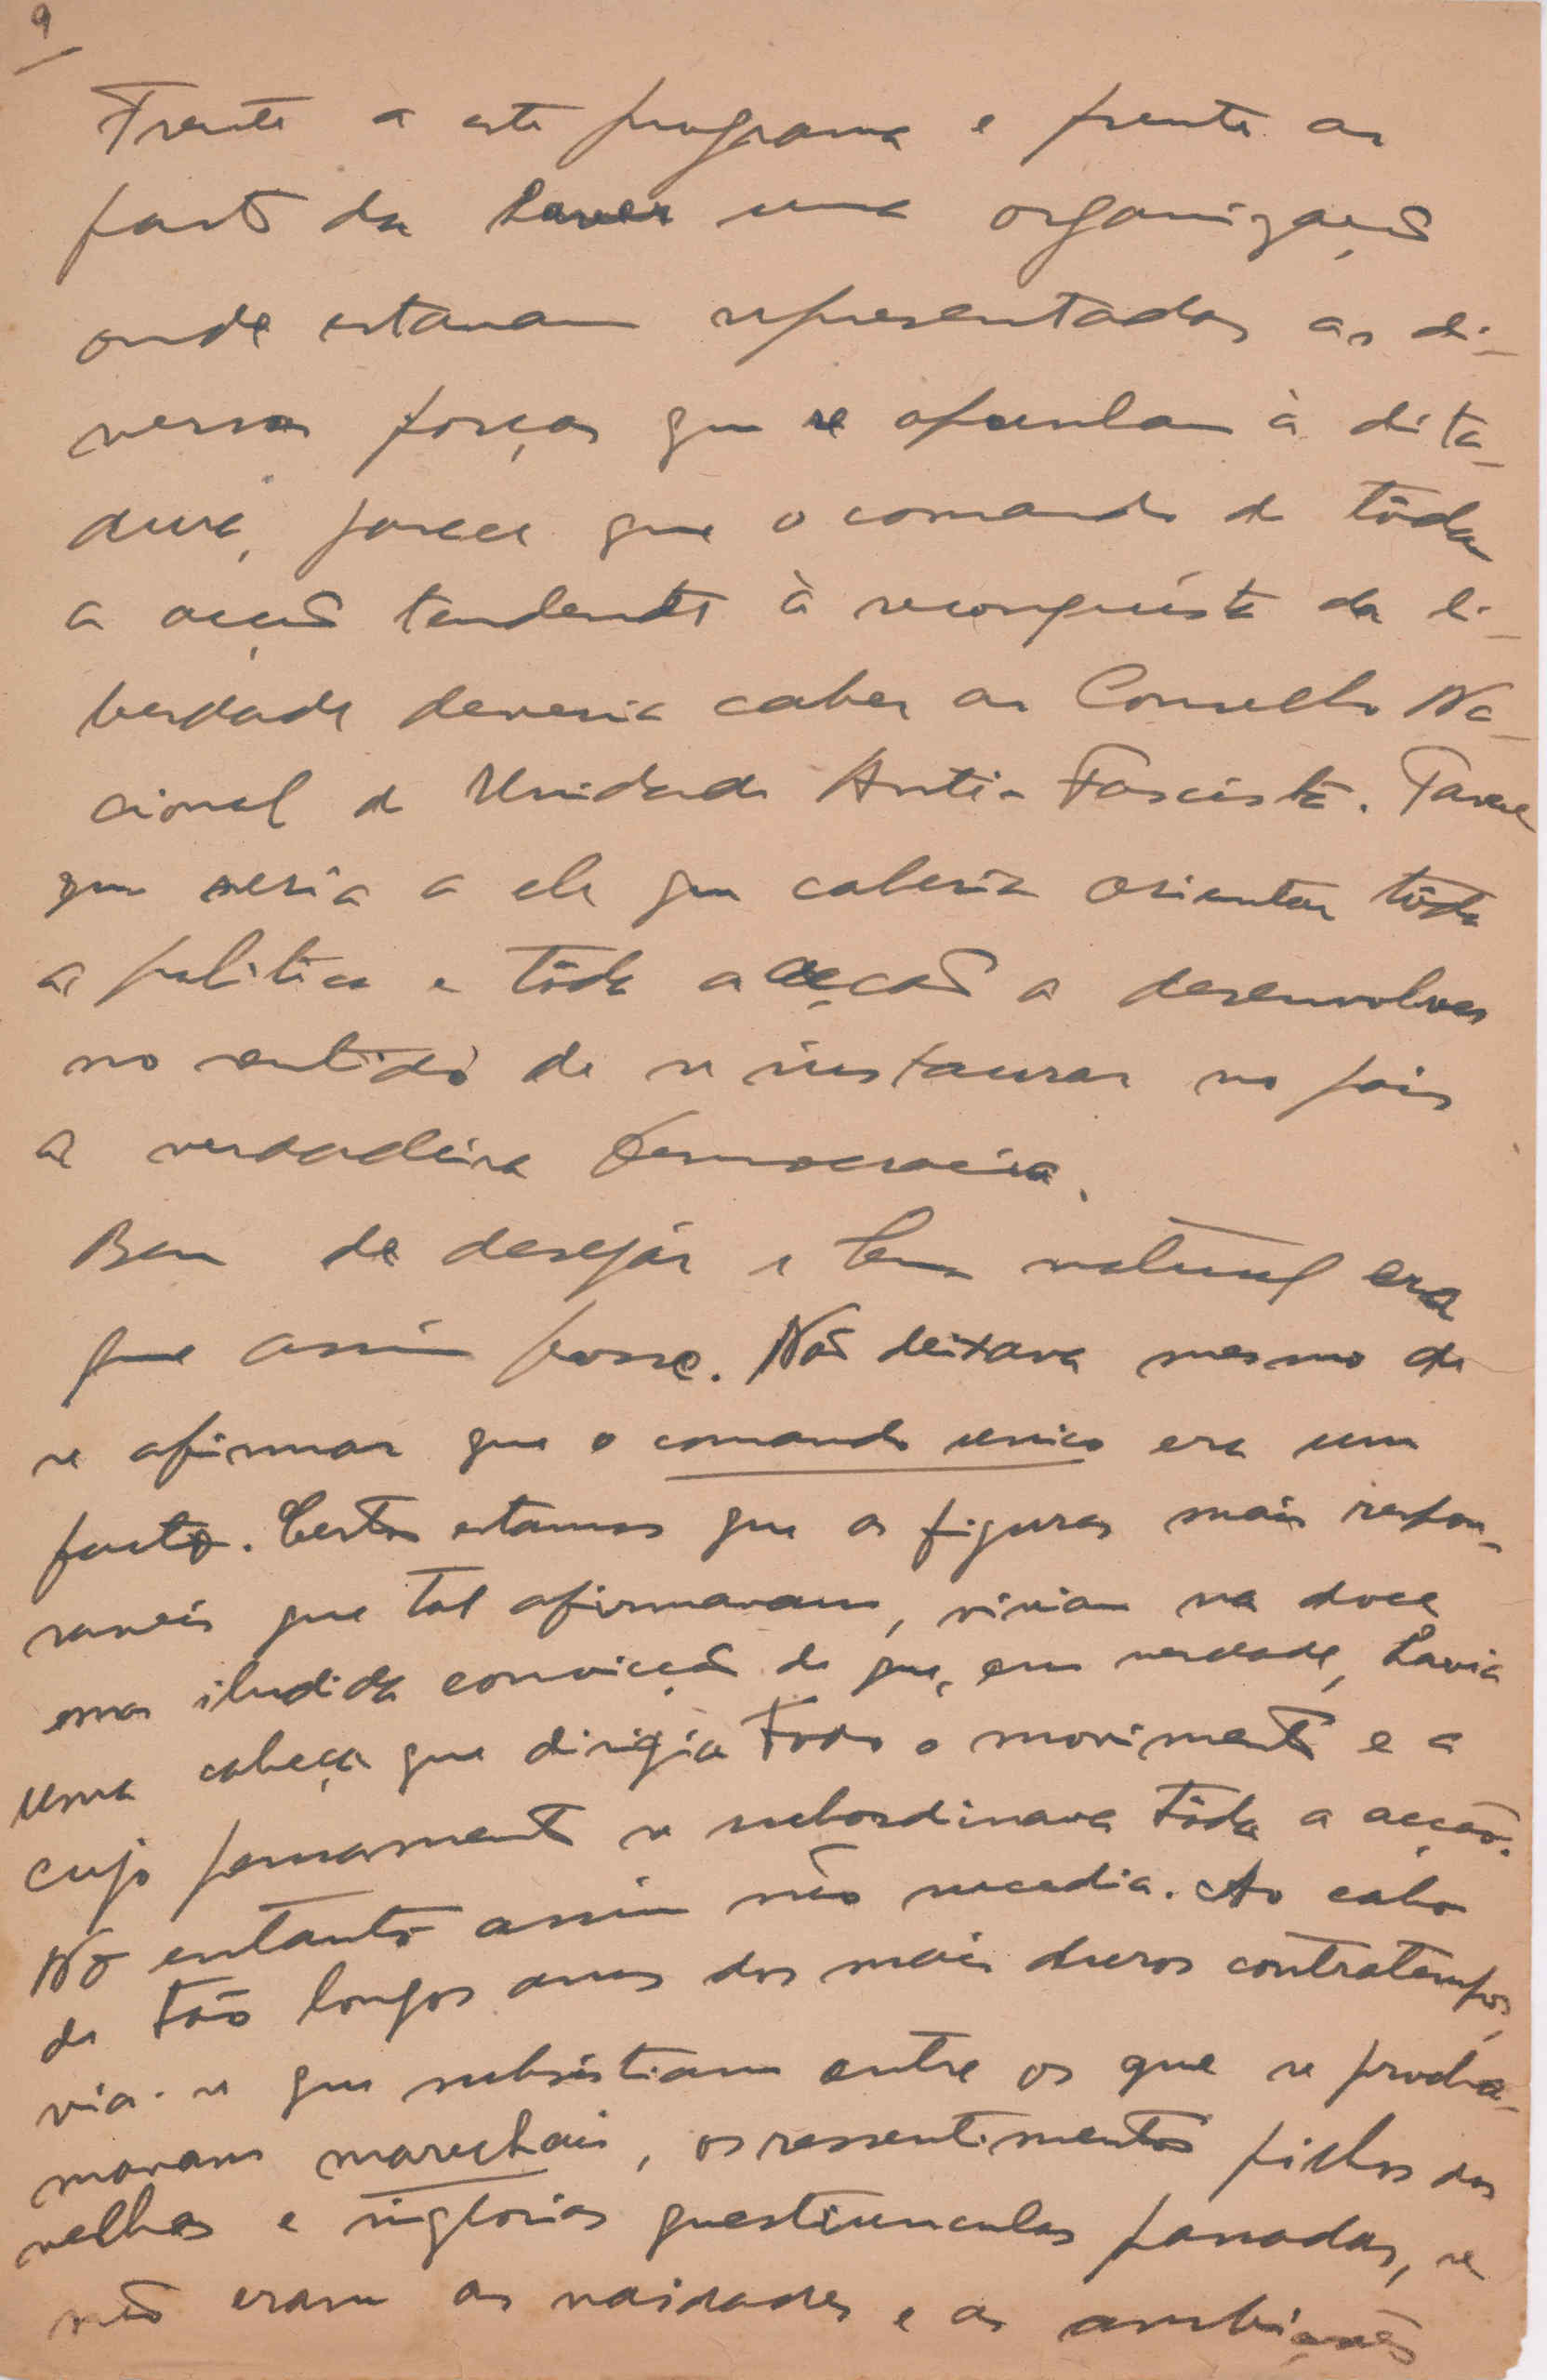 9
Frente a este programa e frente ao
facto de haver uma organização
onde estavam representadas as di-
versas forças que se opunham à dita-
dura, parece que o comando de tôda
a acção tendente à reconquista da li-
berdade deveria caber ao Conselho Na-
cional de Unidade Anti-Fascista. Parece
que seria a ele que caberia orientar tôda
a politica e tôda a acção a desenvolver
no sentido de se instaurar no pais
a verdadeira Democracia.
Bem de desejar e bem natural era
que assim fosse. Não deixava mesmo de
se afirmar que o comando unico era um
facto. Certos estamos que as figuras mais respon-
saveis que tal afirmavam, viviam na doce
mas iludida convicção de que, em verdade, havia
uma cabeça que dirigia todo o movimento e a
cujo pensamento se subordinava tôda a acção.
No entanto assim não sucedia. Ao cabo
de tão longos anos dos mais duros contratempos,
via-se que subsistiam entre os que se procla-
mavam marechais, os ressentimentos filhos das
velhas e inglorias questiunculas passadas, se
não eram as vaidades e as ambições